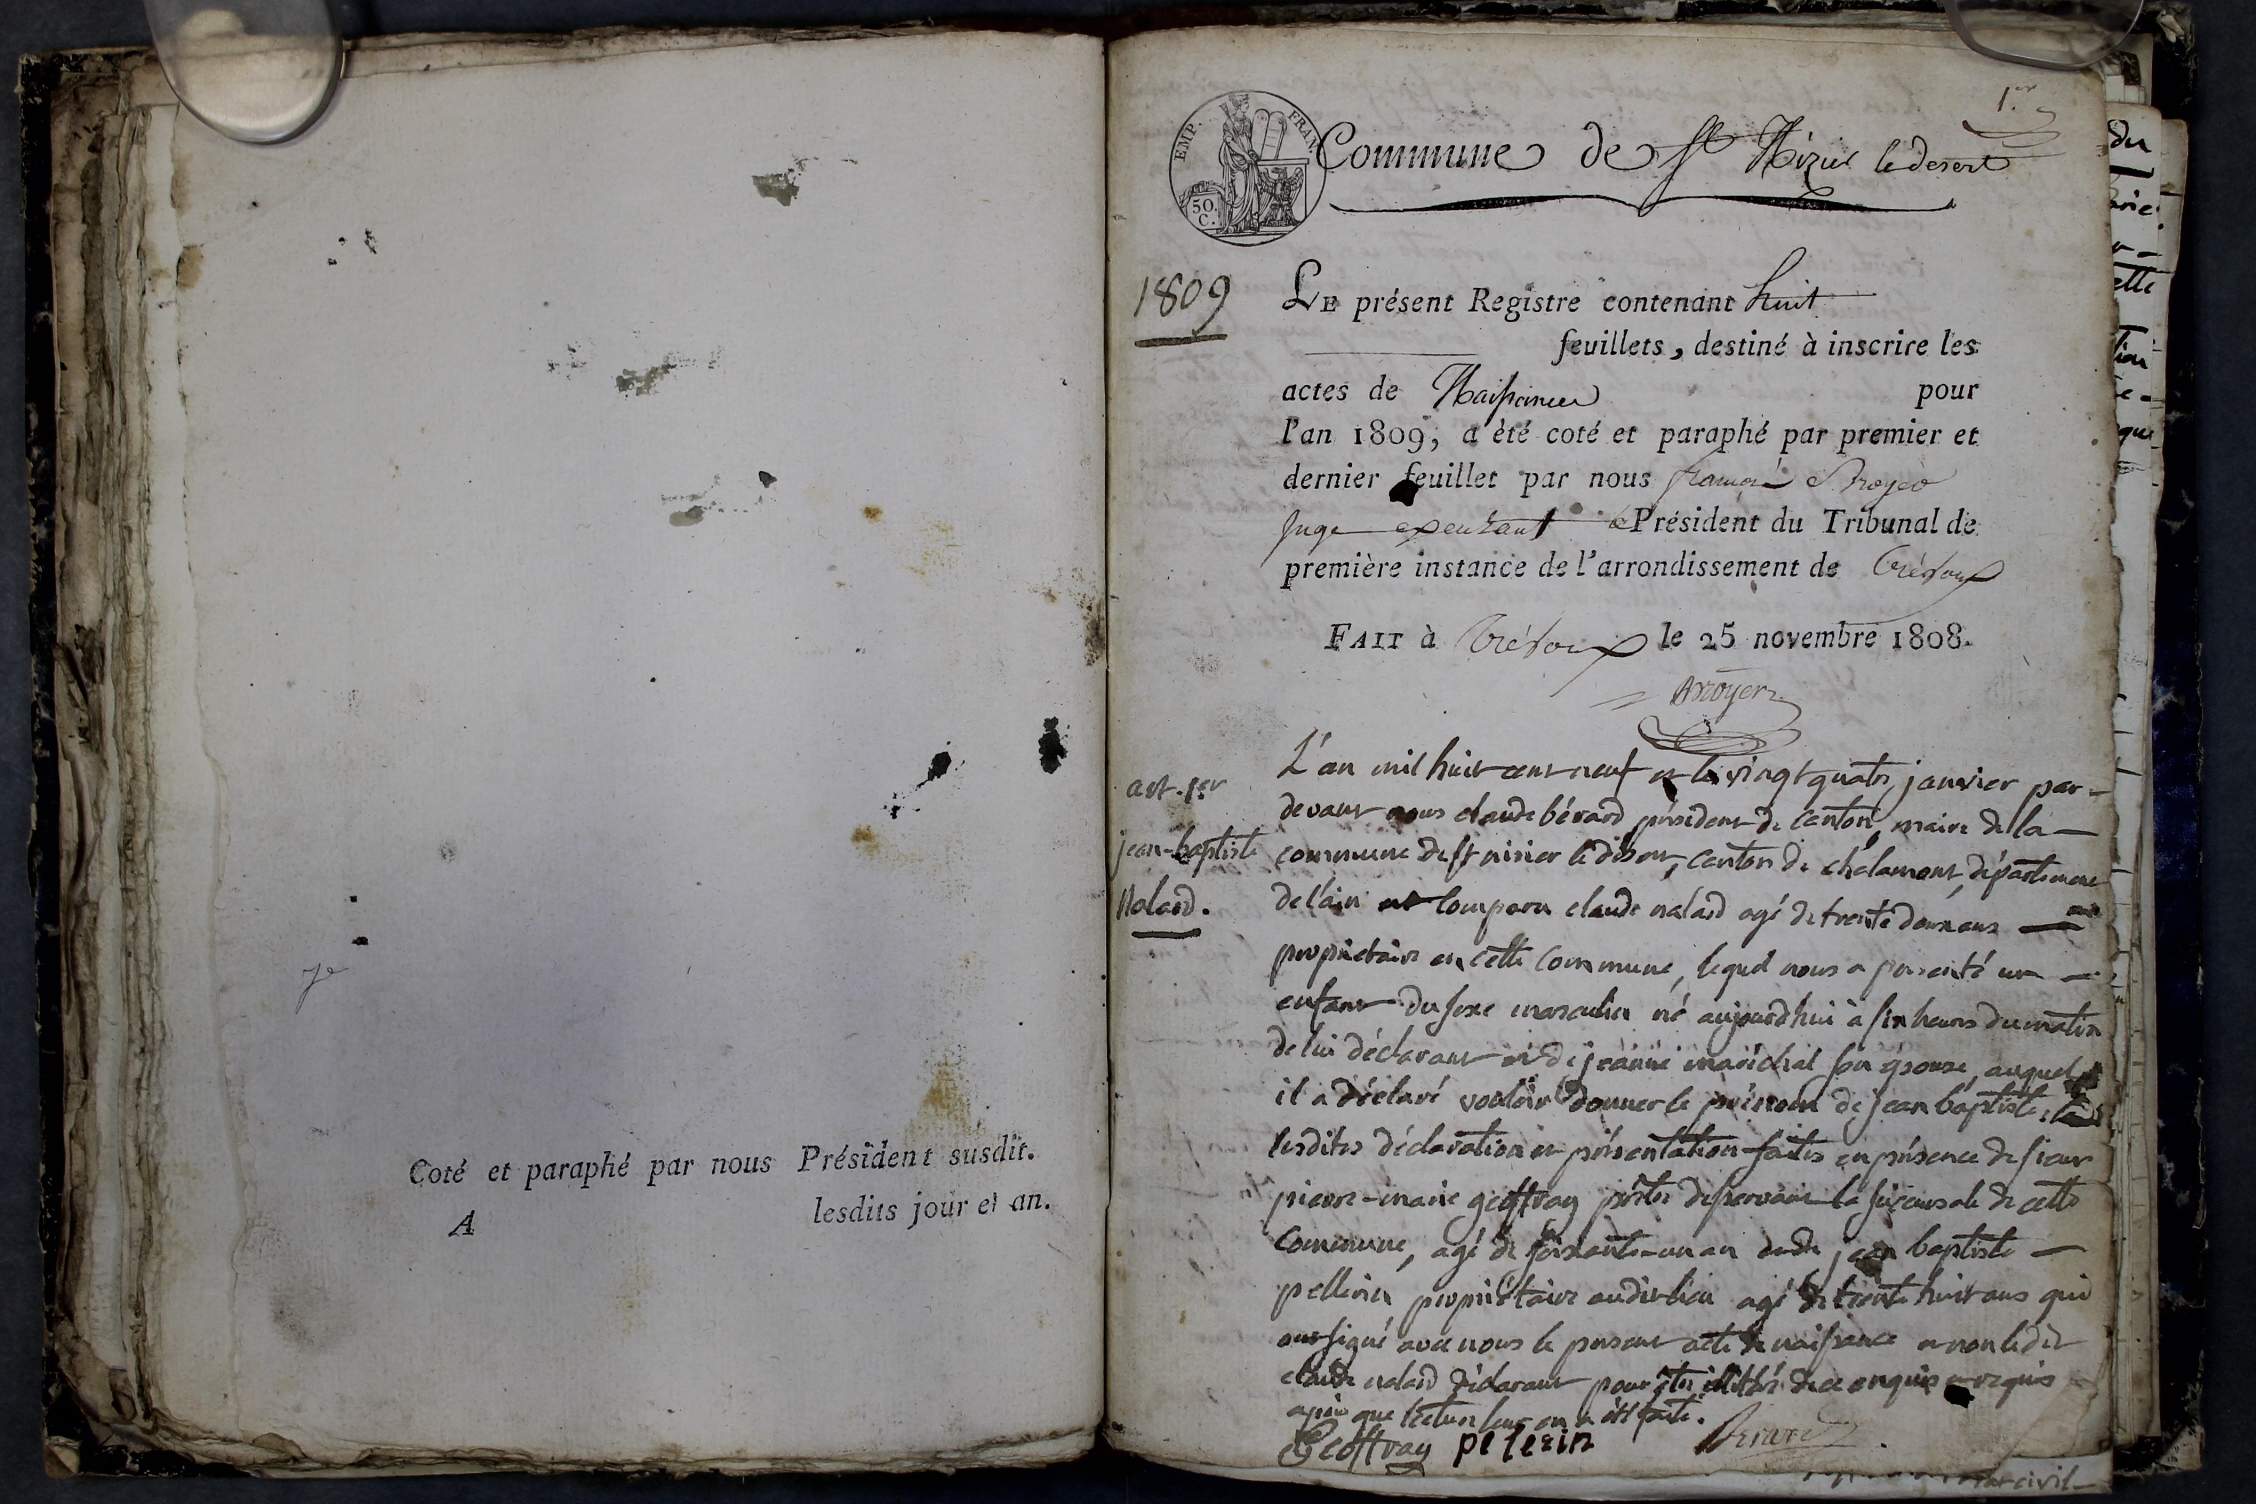 Coté et paraphé par nous Président susdit.
A lesdits jour et an.
1.er
EMP. FRAN.
50. C.
Commune de St Nizier le desert
1809
LE présent Registre contenant huit
feuillets, destiné à inscrire les
actes de Naissances pour
l'an 1809, a été coté et paraphé par premier et
dernier feuillet par nous
Juge Président du Tribunal de
première instance de l'arrondissement de Trévoux
FAIT à Trévoux le 25 novembre 1808.
art. 1er
jean-baptiste
Nalard.
L'an mil huit cent neuf et le vingt quatre janvier par-
devant nous claude bérard président de canton, maire de la
commune de st nizier le désert, canton de chalamont, département
de l'ain est comparu claude nalard agé de trente deux ans
propriétaire en cette commune, lequel nous a présenté un
enfant du sexe masculin né aujourd'hui à six heures du matin
de lui déclarant et de jeanne maréchal son épouse, auquel
il a déclaré vouloir donner le prénom de jean baptiste,
lesdites déclaration et présentation faites en présence de sieur
pierre-marie geoffray prêtre desservant la succursale de cette
commune, agé de soixante-un an et de jean baptiste
pellerin propriétaire audit lieu agé de trente huit ans qui
ont signé avec nous le présent acte de naissance et non ledit
claude nalard déclarant pour être illitéré de ce enquis et requis
après que lecture leur en a été faite.
Geoffray pelerin Berard